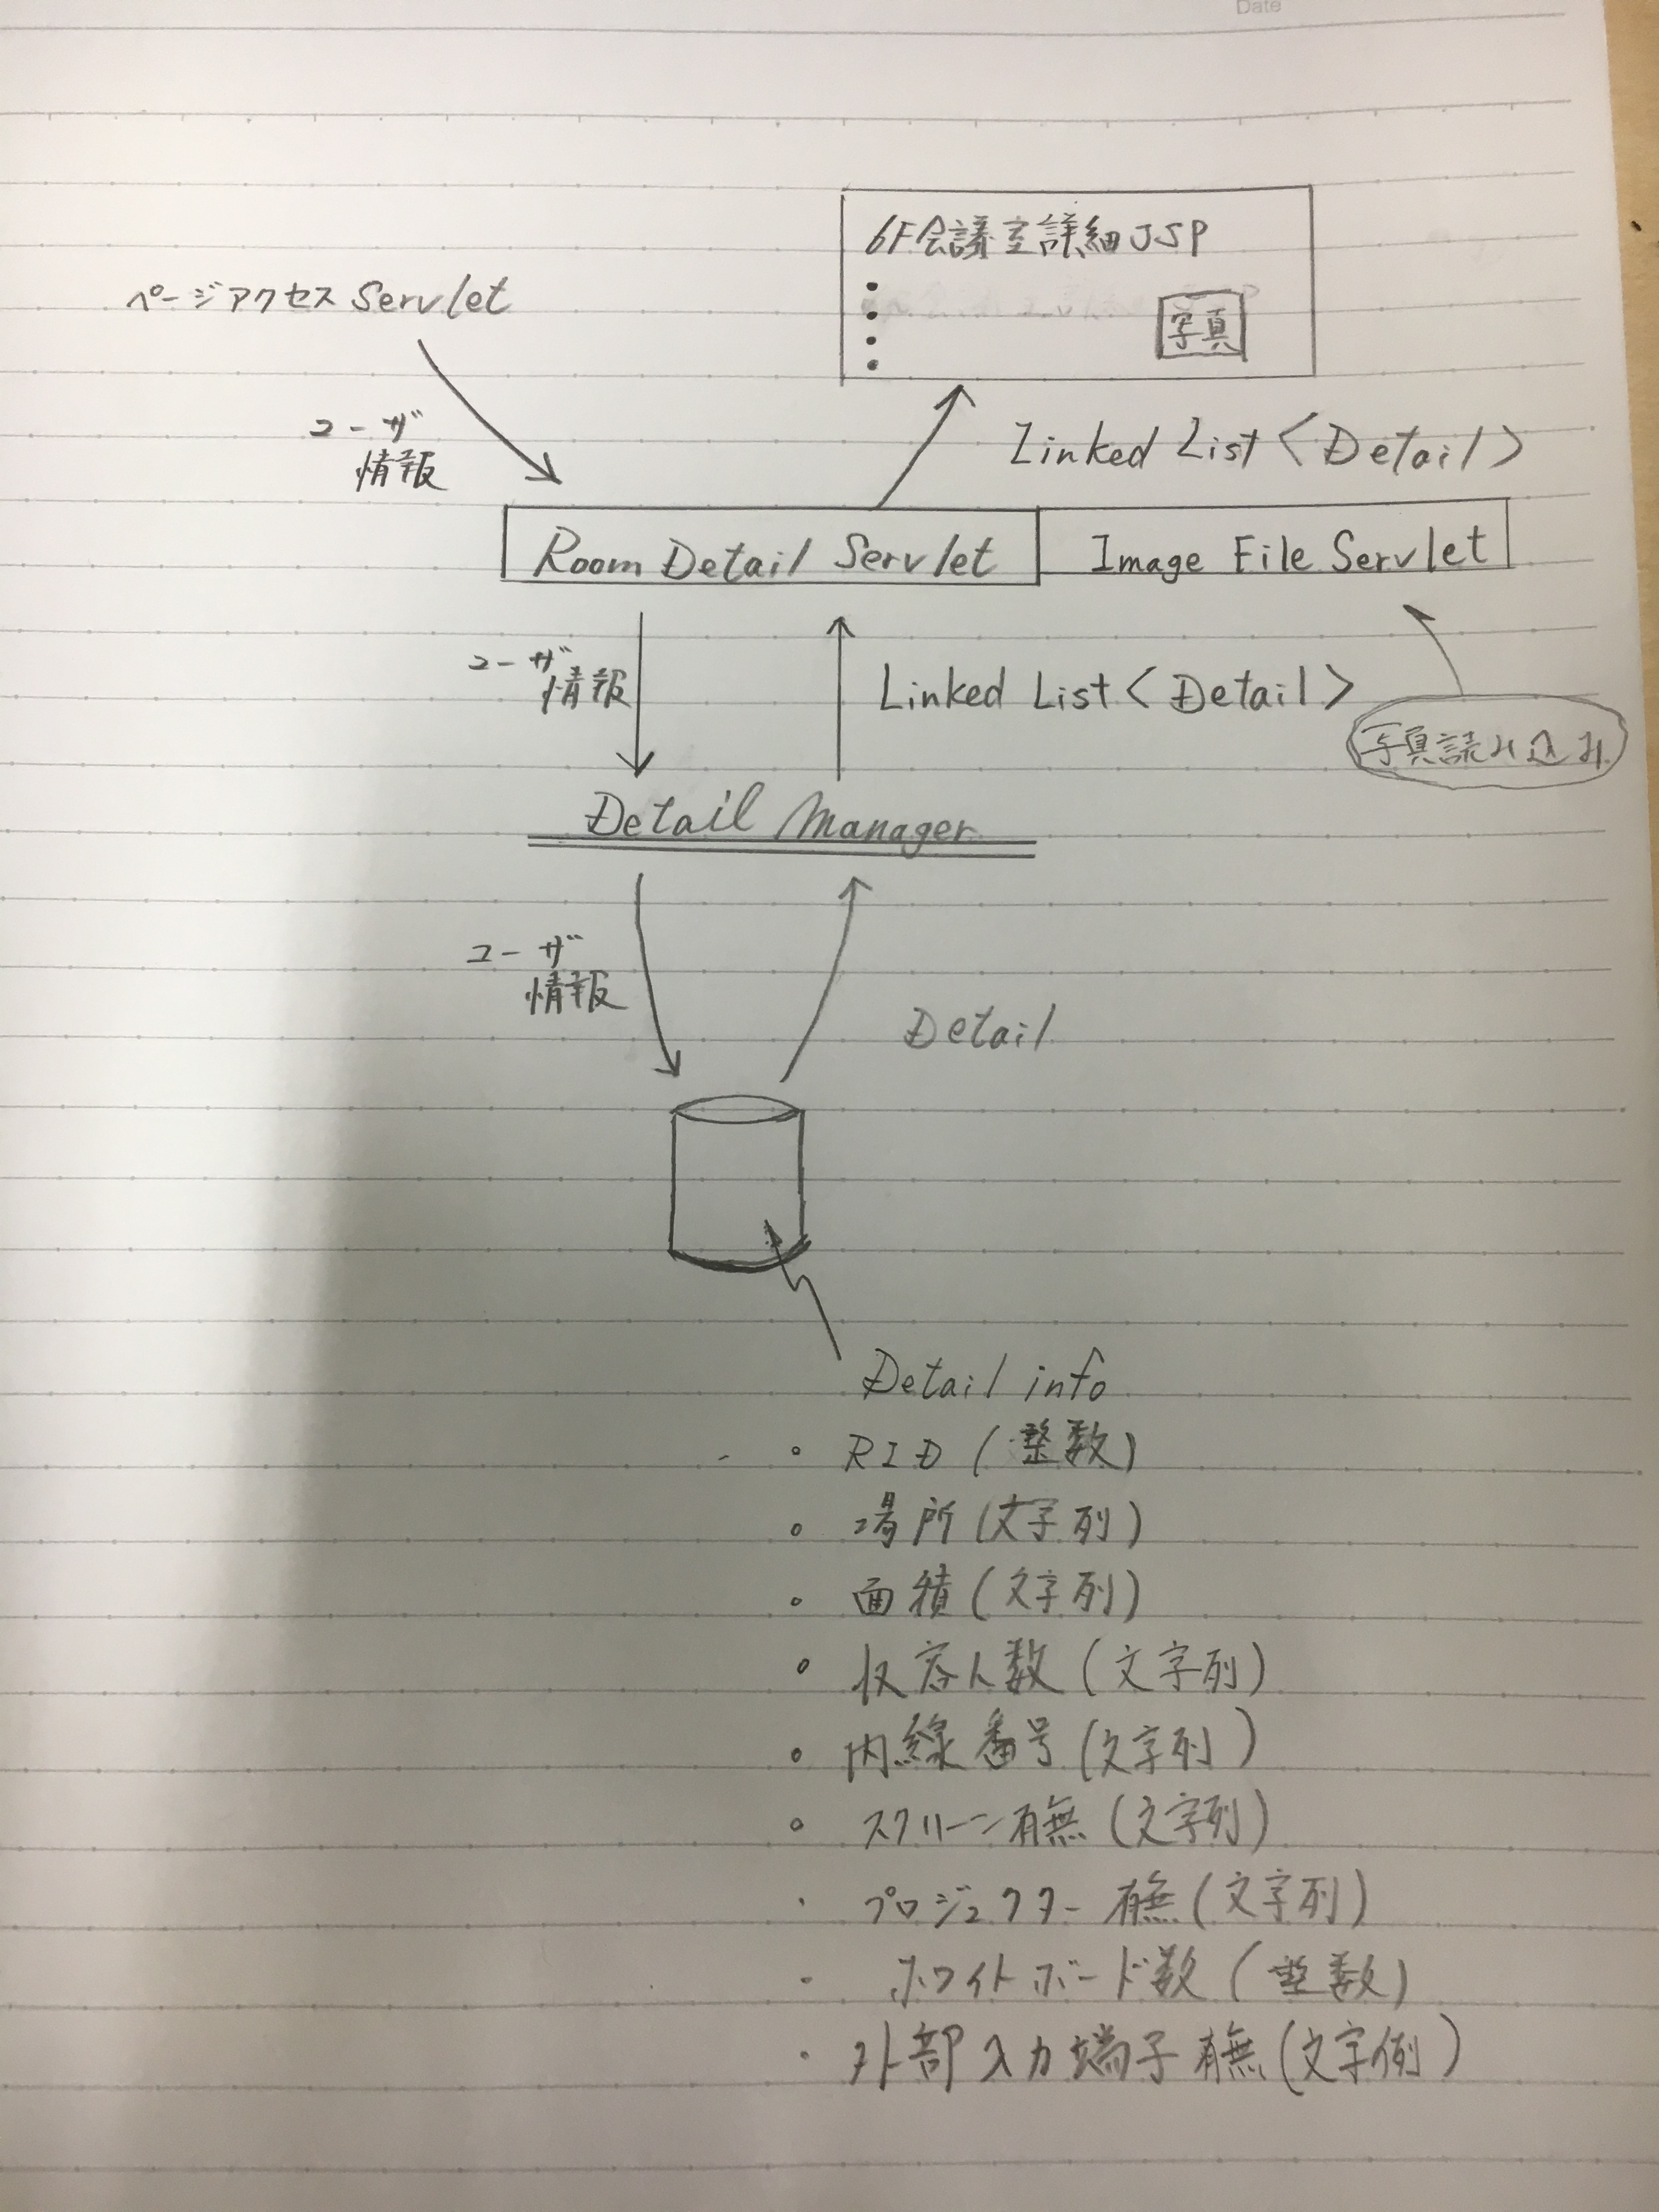 Date
6F会議室詳細JSP
ページアクセス Servlet
写真
ユーザ
情報
Linked List <Detail>
Room Detail Servlet
Image File Servlet
ユーザ
情報
Linked List <Detail>
写真読み込み
Detail Manager
ユーザ
情報
Detail
Detail info
・RID (整数)
・場所 (文字列)
・面積 (文字列)
・収容人数 (文字列)
・内線番号 (文字列)
・スクリーン有無 (文字列)
・プロジェクター有無 (文字列)
・ホワイトボード数 (整数)
・外部入力端子有無 (文字例)